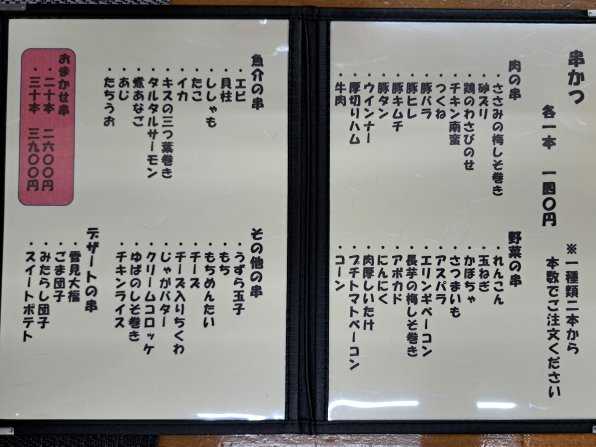 串かつ
各一本 一四〇円
※一種類二本から
本数でご注文ください
肉の串
・ささみの梅しそ巻き
・砂ズリ
・鶏のわさびのせ
・チキン南蛮
・つくね
・豚バラ
・豚ヒレ
・豚キムチ
・豚タン
・ウインナー
・厚切りハム
・牛肉
野菜の串
・れんこん
・玉ねぎ
・かぼちゃ
・さつまいも
・アスパラ
・エリンギベーコン
・長芋の梅しそ巻き
・アボカド
・にんにく
・肉厚しいたけ
・プチトマトベーコン
・コーン
魚介の串
・エビ
・貝柱
・ししゃも
・たこ
・イカ
・キスの三つ葉巻き
・タルタルサーモン
・煮あなご
・あじ
・たちうお
その他の串
・うずら玉子
・もち
・もちめんたい
・チーズ
・チーズ入りちくわ
・じゃがバター
・クリームコロッケ
・ゆばのしそ巻き
・チキンライス
おまかせ串
・二十本 二六〇〇円
・三十本 三九〇〇円
デザートの串
・雪見大福
・ごま団子
・みたらし団子
・スイートポテト